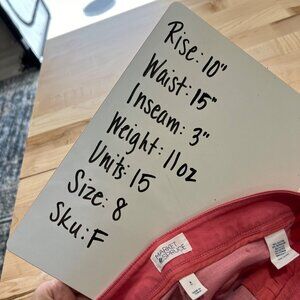 Rise: 10"
Waist: 15"
Inseam: 3"
Weight: 11oz
Units: 15
Size: 8
Sku: F
MARKET
& SPRUCE